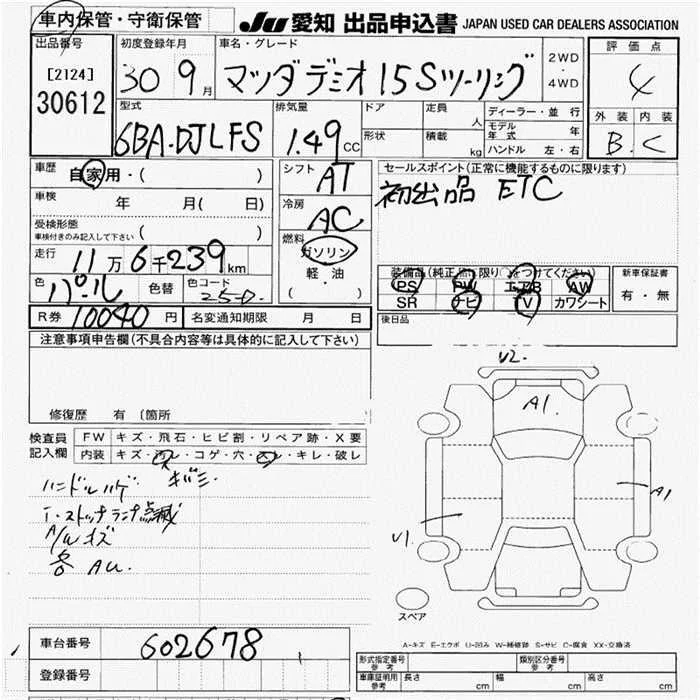 車内保管・守衛保管 JU 愛知 出品申込書 JAPAN USED CAR DEALERS ASSOCIATION
出品番号
[2124]
30612
初度登録年月
30 9月
車名・グレード
マツダデミオ 15Sツーリング
2WD
4WD
評価点
4
型式
6BA-DJLFS
排気量
1.49 CC
ドア
形状
定員 人
積載 kg
ディーラー・並 行
モデル年式 年
ハンドル 左・右
外装 内装
B. C
車歴 自家用・( )
車検 年 月( 日)
受検形態
車検付きのみ記入して下さい ( )
走行 11万6千239km
色 パール 色替 色コード 25-D
シフト AT
冷房 AC
燃料
ガソリン
軽・油
( )
セールスポイント(正常に機能するものに限ります)
初出品 ETC
装備品(純正品に限り○をつけてください)
PS PW エアB AW
SR ナビ TV カワシート
新車保証書
有・無
R券 10040円 名変通知期限 月 日
後日品
注意事項申告欄(不具合内容等は具体的に記入して下さい)
修復歴 有 〔箇所
検査員記入欄
FW キズ・飛石・ヒビ割・リペア跡・X要
内装 キズ・汚レ・コゲ・穴・スレ・キレ・破レ
ハンドルハゲ キバミ
I・ストップランプ点滅
A/Wキズ
各 AU.
V2.
A1.
A1
V1.
スペア
A-キズ E-エクボ U-凹み W-補修跡 S-サビ C-腐食 XX-交換済
車台番号 602678
登録番号
形式指定番号 参考
類別区分番号 参考
車庫証明用 参考 長さ cm 幅 cm 高さ cm